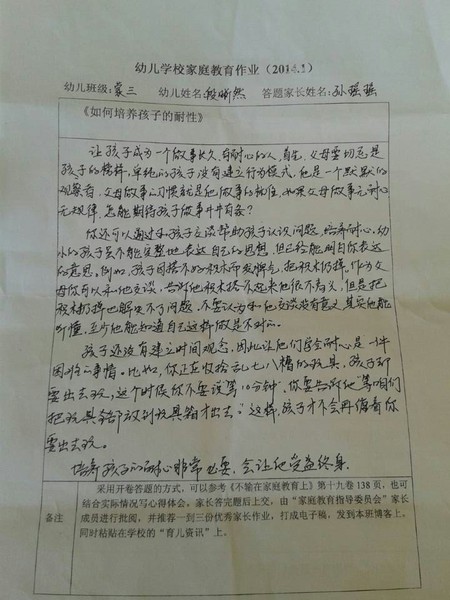 幼儿学校家庭教育作业（2014.1）
幼儿班级：蒙三 幼儿姓名 段晰然 答题家长姓名：孙强强
《如何培养孩子的耐性》
让孩子成为一个做事长久、有耐心的人，首先，父母要切忌是
孩子的榜样，单纯的孩子没有建立行为模式，他是一个默默的
观察者，父母做事的习惯就是他做事的标准，如果父母做事无耐心
无规律，怎能期待孩子做事井井有条？
你还可以通过和孩子交谈帮助孩子认识问题，培养耐心，幼
小的孩子虽不能完整地表达自己的思想，但已经能明白你表达
的意思，例如，孩子因搭不好积木而发脾气，把积木扔掉，作为父
母你可以和他交谈，告诉他积木搭不起来他很不高兴，但是把
积木扔掉也解决不了问题，不要认为和他交谈没有意义，其实他能
听懂，至少他能知道自己这样做是不对的。
孩子还没有建立时间观念，因此让他们学会耐心是一件
困难的事情。比如，你正在收拾乱七八糟的玩具，孩子却
要出去玩，这个时候你不要说"等10分钟"，你要告诉他"等咱们
把玩具全部放到玩具箱才出去。"这样，孩子才不会再催着你
要出去玩。
培养孩子的耐心非常必要，会让他受益终身。
备注
采用开卷答题的方式，可以参考《不输在家庭教育上》第十九卷138页，也可
结合实际情况写心得体会。家长答完题后上交，由"家庭教育指导委员会"家长
成员进行批阅，并推荐一到三份优秀家长作业，打成电子稿，发到本班博客上。
同时粘贴在学校的"育儿资讯"上。